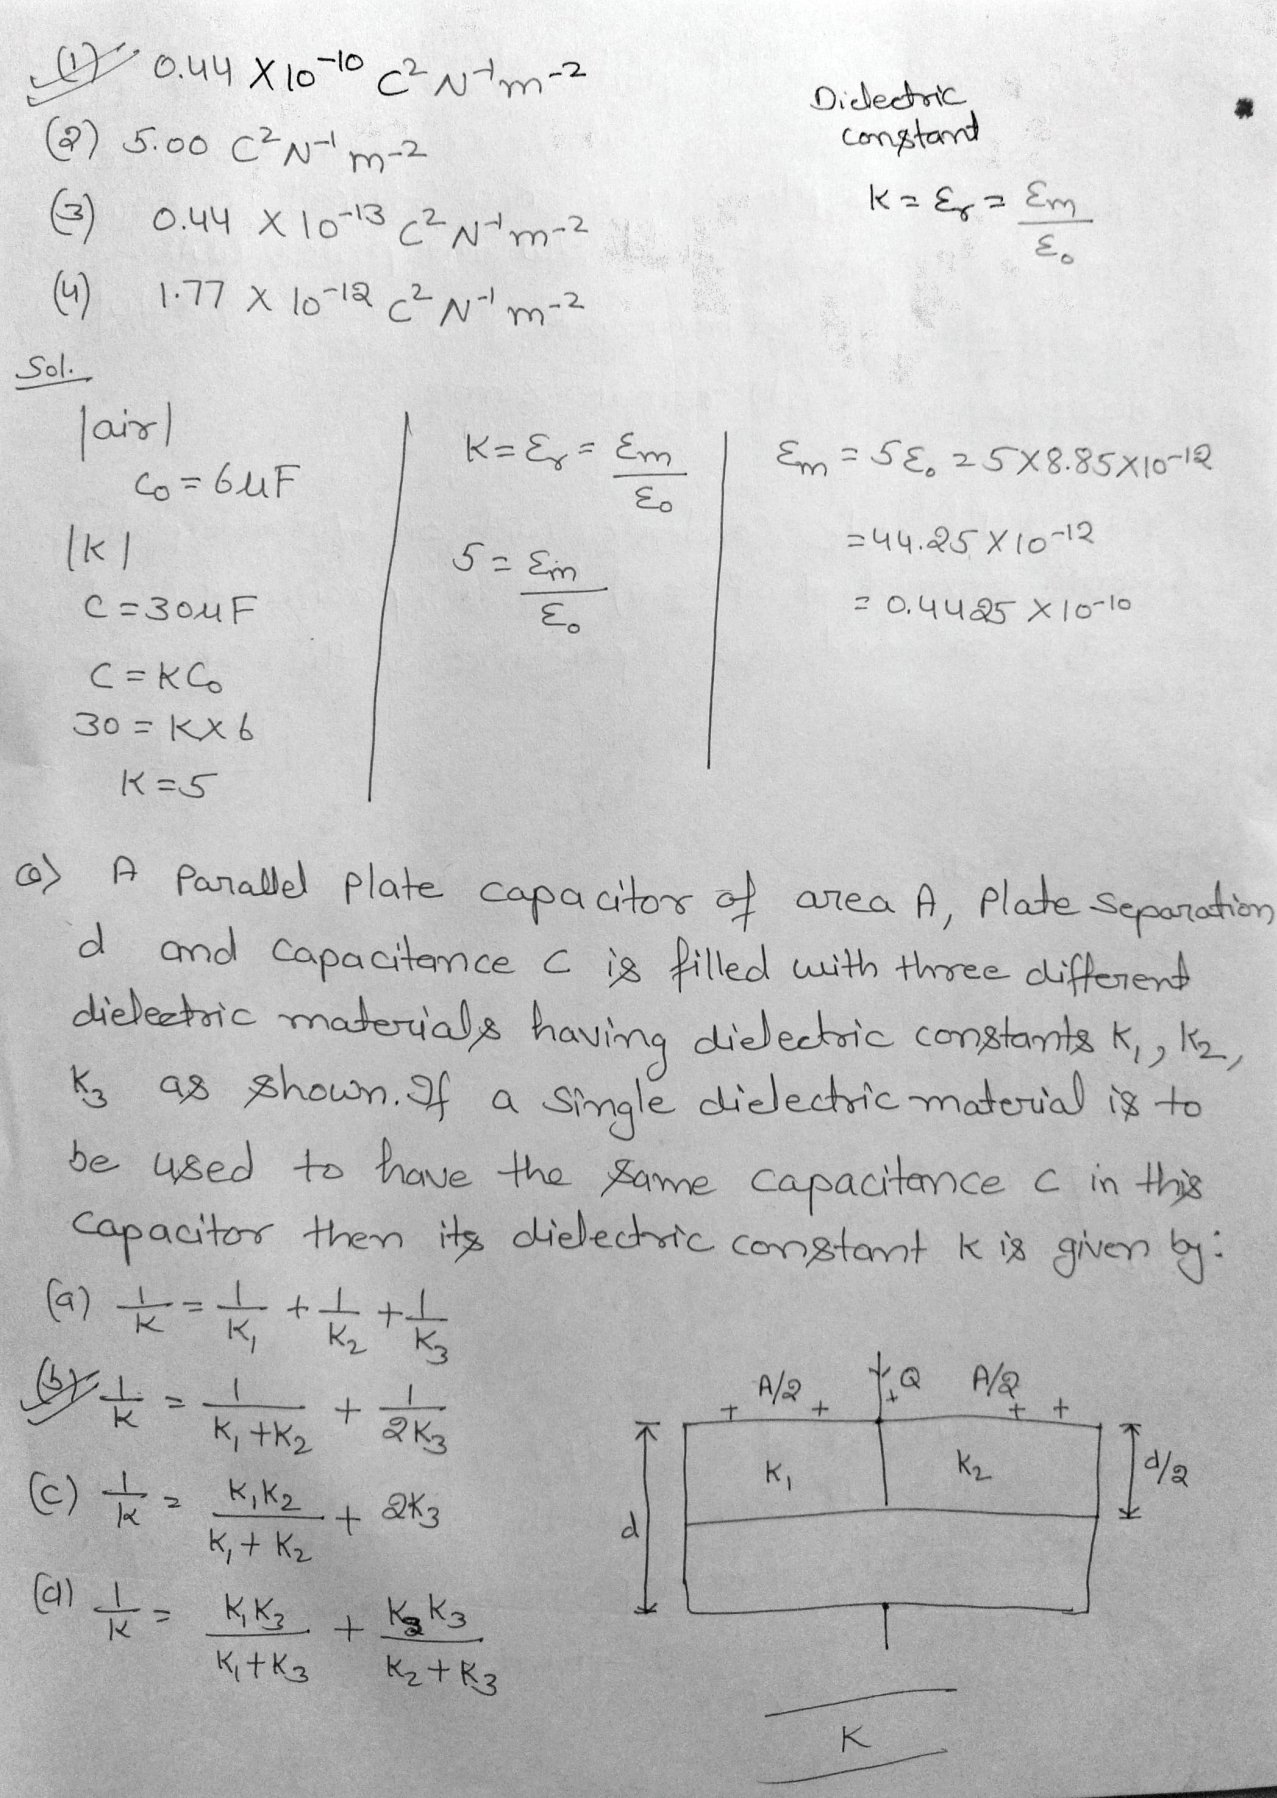 (1) 0.44 × 10⁻¹⁰ C² N⁻¹ m⁻²
(2) 5.00 C² N⁻¹ m⁻²
(3) 0.44 × 10⁻¹³ C² N⁻¹ m⁻²
(4) 1.77 × 10⁻¹² C² N⁻¹ m⁻²
Dielectric
constant
K = εᵣ = εm/ε₀
Sol.
|air|
C₀ = 6μF
|K|
C = 30μF
C = KC₀
30 = K × 6
K = 5
K = εᵣ = εm/ε₀
5 = εm/ε₀
εm = 5ε₀ = 5×8.85×10⁻¹²
= 44.25 × 10⁻¹²
= 0.4425 × 10⁻¹⁰
Q) A Parallel plate capacitor of area A, Plate separation
d and capacitance C is filled with three different
dielectric materials having dielectric constants K₁, K₂,
K₃ as shown. If a single dielectric material is to
be used to have the same capacitance C in this
capacitor then its dielectric constant K is given by:
(a) 1/K = 1/K₁ + 1/K₂ + 1/K₃
(b) 1/K = 1/(K₁+K₂) + 1/2K₃
(c) 1/K = K₁K₂/(K₁+K₂) + 2K₃
(d) 1/K = K₁K₃/(K₁+K₃) + K₂K₃/(K₂+K₃)
A/2 + Q A/2
+ + + +
K₁ K₂ d/2
d
K